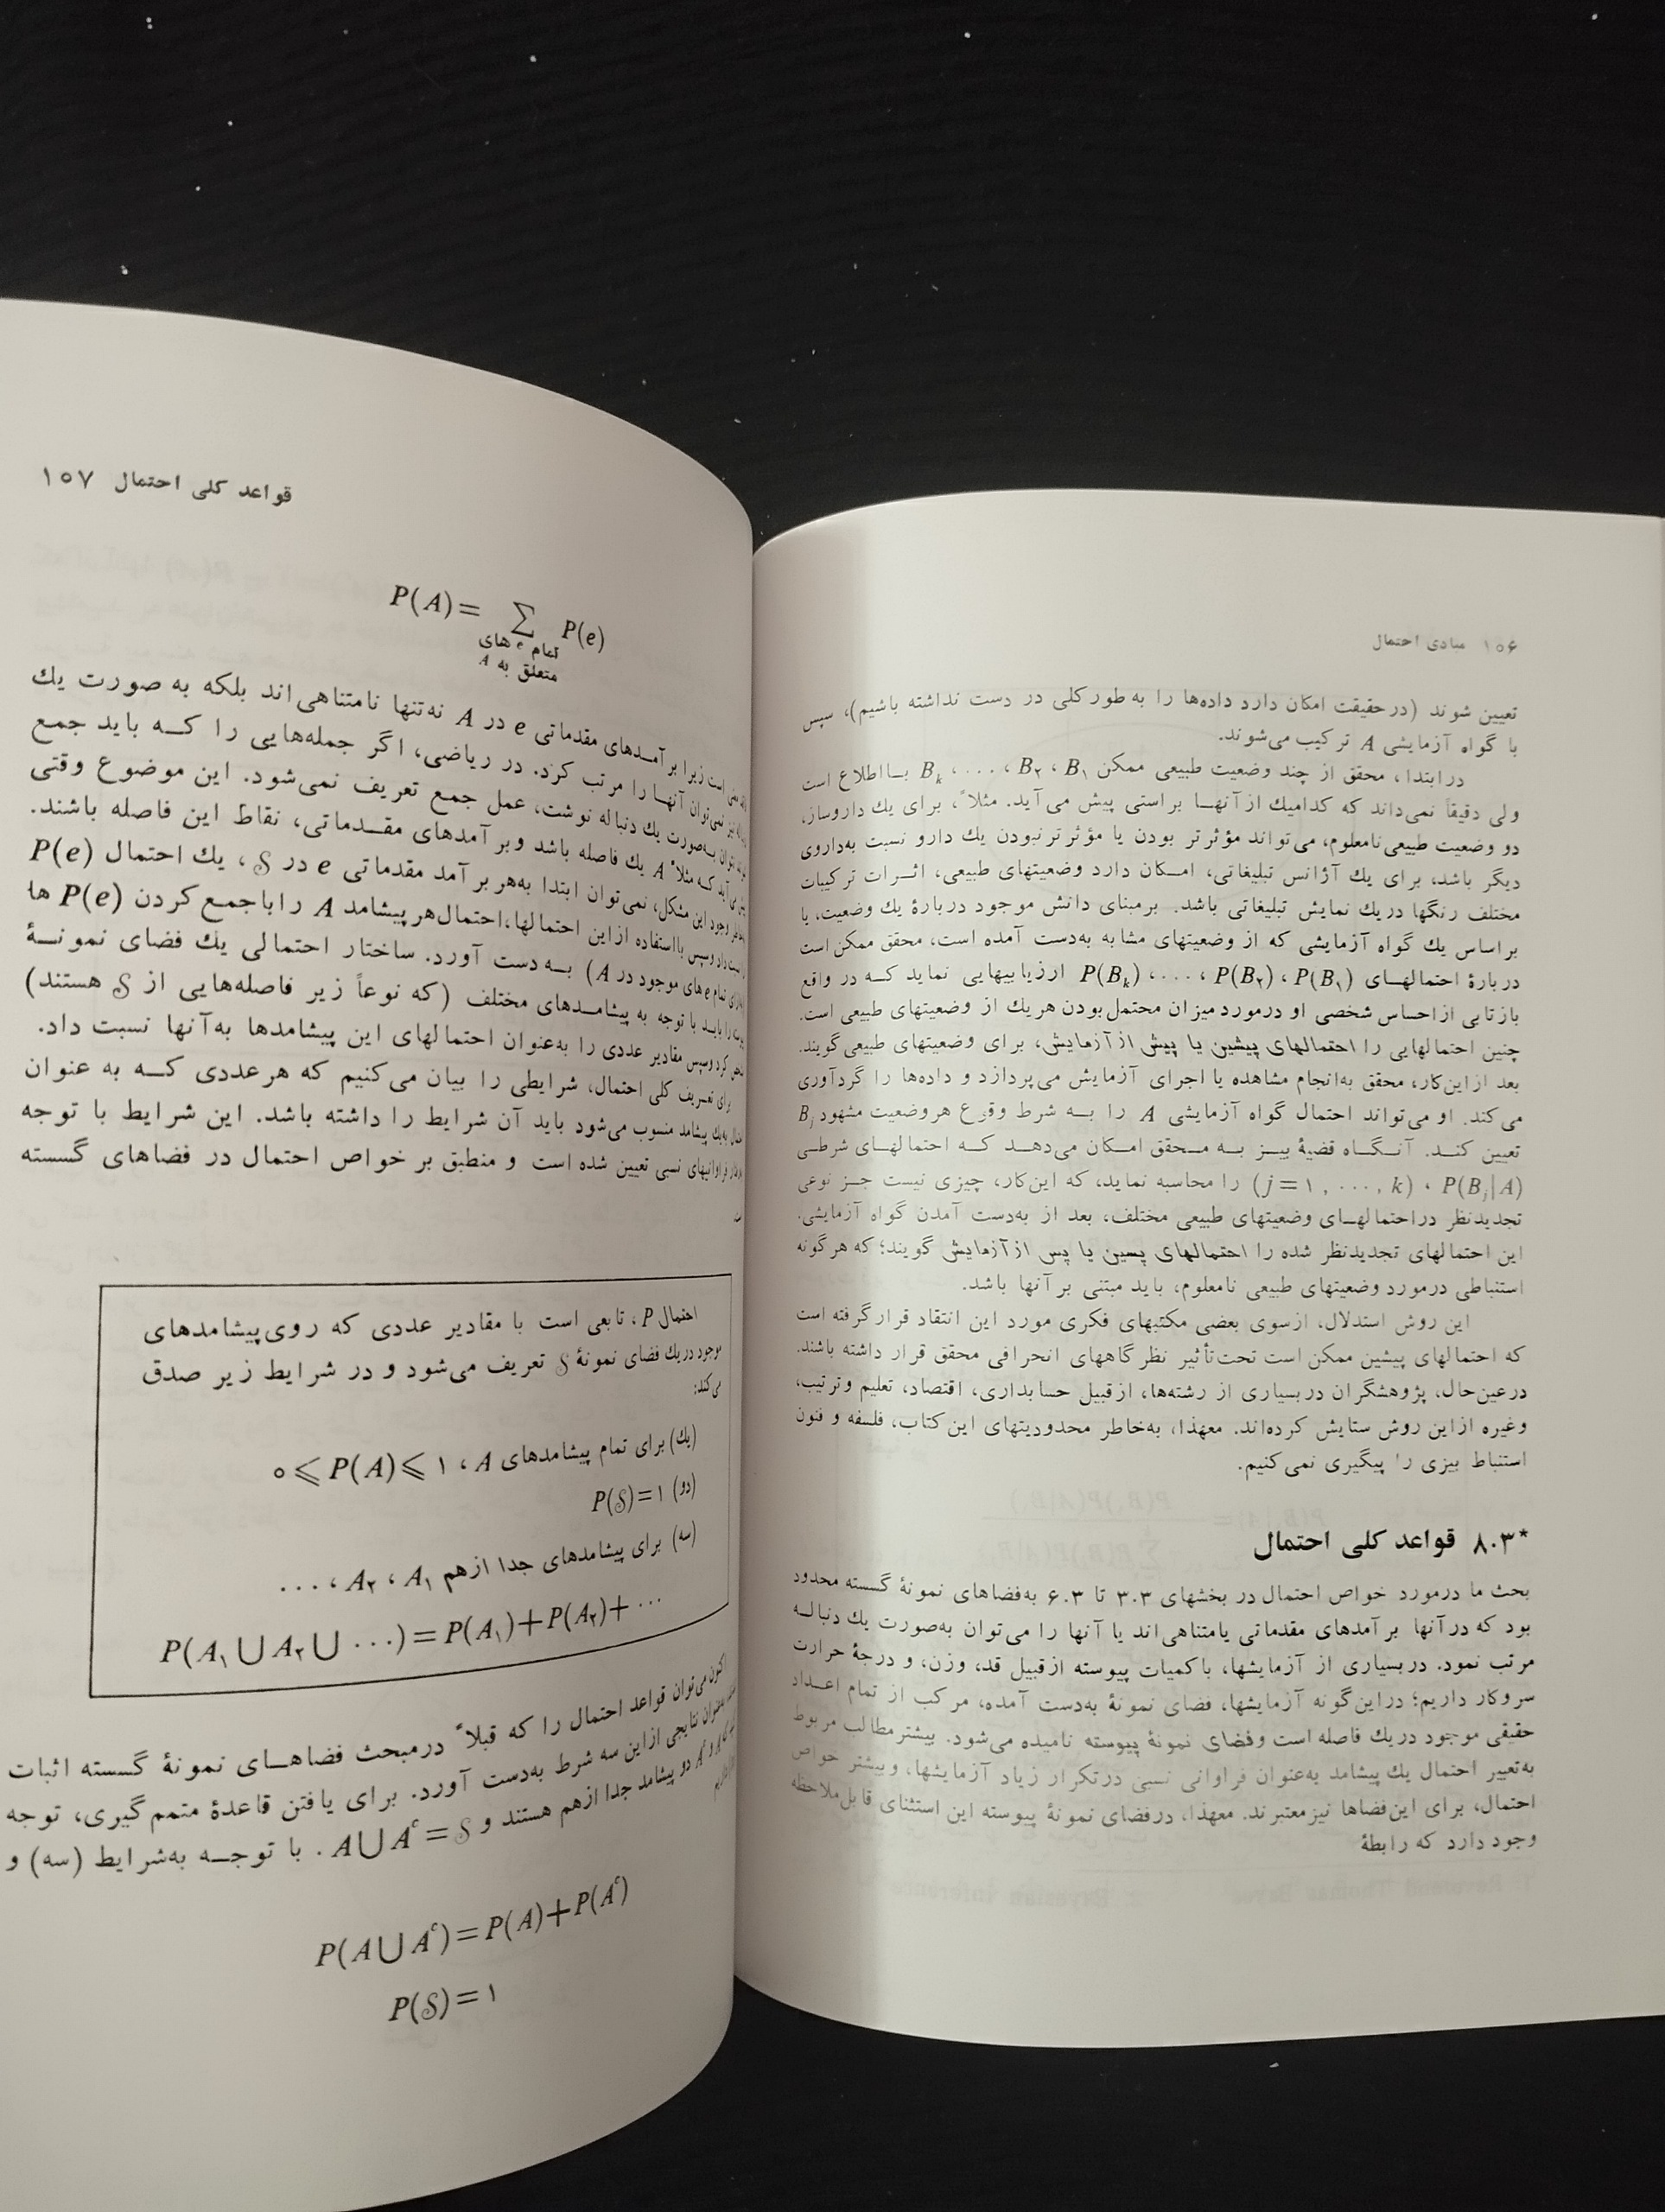 ۱۰۶ مبادی احتمال
تعیین شوند (درحقیقت امکان دارد داده‌ها را به طور کلی در دست نداشته باشیم)، سپس
با گواه آزمایشی A ترکیب می‌شوند.
در ابتدا، محقق از چند وضعیت طبیعی ممکن B۱، B۲، ...، Bk بااطلاع است
ولی دقیقاً نمی‌داند که کدامیك از آنها براستی پیش می‌آید. مثلاً، برای یك داروساز،
دو وضعیت طبیعی نامعلوم، می‌تواند مؤثرتر بودن یا مؤثرتر نبودن یك دارو نسبت به‌داروی
دیگر باشد، برای یك آژانس تبلیغاتی، امکان دارد وضعیتهای طبیعی، اثرات ترکیبات
مختلف رنگها در یك نمایش تبلیغاتی باشد. برمبنای دانش موجود دربارهٔ یك وضعیت، یا
براساس یك گواه آزمایشی که از وضعیتهای مشابه به‌دست آمده است، محقق ممکن است
دربارهٔ احتمالهای P(B۱)، P(B۲)، ...، P(Bk) ارزیابیهایی نماید که در واقع
بازتابی از احساس شخصی او درمورد میزان محتمل بودن هریك از وضعیتهای طبیعی است.
چنین احتمالهایی را احتمالهای پیشین یا پیش از آزمایش، برای وضعیتهای طبیعی گویند.
بعد از این‌کار، محقق به‌انجام مشاهده یا اجرای آزمایش می‌پردازد و داده‌ها را گردآوری
می‌کند. او می‌تواند احتمال گواه آزمایشی A را به شرط وقوع هروضعیت مشهود Bj
تعیین کند. آنگاه قضیهٔ بیز به محقق امکان می‌دهد که احتمالهای شرطی
P(Bj|A)، (j=۱, ..., k) را محاسبه نماید، که این‌کار، چیزی نیست جز نوعی
تجدیدنظر دراحتمالهای وضعیتهای طبیعی مختلف، بعد از به‌دست آمدن گواه آزمایشی.
این احتمالهای تجدیدنظر شده را احتمالهای پسین یا پس از آزمایش گویند؛ که هرگونه
استنباطی درمورد وضعیتهای طبیعی نامعلوم، باید مبتنی بر آنها باشد.
این روش استدلال، ازسوی بعضی مکتبهای فکری مورد این انتقاد قرار گرفته است
که احتمالهای پیشین ممکن است تحت‌تأثیر نظرگاههای انحرافی محقق قرار داشته باشند.
درعین‌حال، پژوهشگران در بسیاری از رشته‌ها، ازقبیل حسابداری، اقتصاد، تعلیم وترتیب،
وغیره از این روش ستایش کرده‌اند. معهذا، به‌خاطر محدودیتهای این کتاب، فلسفه و فنون
استنباط بیزی را پیگیری نمی‌کنیم.
*۸.۳ قواعد کلی احتمال
بحث ما درمورد خواص احتمال در بخشهای ۳.۳ تا ۶.۳ به‌فضاهای نمونهٔ گسسته محدود
بود که در آنها برآمدهای مقدماتی یامتناهی‌اند یا آنها را می‌توان به‌صورت یك دنباله
مرتب نمود. در بسیاری از آزمایشها، با کمیات پیوسته ازقبیل قد، وزن، و درجهٔ حرارت
سروکار داریم؛ دراین‌گونه آزمایشها، فضای نمونهٔ به‌دست آمده، مرکب از تمام اعداد
حقیقی موجود دریك فاصله است وفضای نمونهٔ پیوسته نامیده می‌شود. بیشتر مطالب مربوط
به‌تعبیر احتمال یك پیشامد به‌عنوان فراوانی نسبی درتکرار زیاد آزمایشها، وبیشتر خواص
احتمال، برای این‌فضاها نیز معتبرند. معهذا، درفضای نمونهٔ پیوسته این استثنای قابل‌ملاحظه
وجود دارد که رابطهٔ
قواعد کلی احتمال ۱۰۷
P(A)= ∑ P(e)
تمام e های
متعلق به A
است زیرا برآمدهای مقدماتی e در A نه‌تنها نامتناهی‌اند بلکه به صورت یك
نمی‌توان آنها را مرتب کرد. در ریاضی، اگر جمله‌هایی را که باید جمع
به‌صورت یك دنباله نوشت، عمل جمع تعریف نمی‌شود. این موضوع وقتی
که مثلاً A یك فاصله باشد وبرآمدهای مقدماتی، نقاط این فاصله باشند.
وجود این مشکل، نمی‌توان ابتدا به‌هر برآمد مقدماتی e در S، یك احتمال P(e)
داد وسپس بااستفاده ازاین احتمالها، احتمال‌هر پیشامد A را باجمع کردن P(e) ها
تمام e های موجود در A) به دست آورد. ساختار احتمالی یك فضای نمونهٔ
را باید با توجه به پیشامدهای مختلف (که نوعاً زیر فاصله‌هایی از S هستند)
کرد وسپس مقادیر عددی را به‌عنوان احتمالهای این پیشامدها به‌آنها نسبت داد.
تعریف کلی احتمال، شرایطی را بیان می‌کنیم که هرعددی که به عنوان
به‌یك پیشامد منسوب می‌شود باید آن شرایط را داشته باشد. این شرایط با توجه
فراوانیهای نسبی تعیین شده است و منطبق بر خواص احتمال در فضاهای گسسته
احتمال P، تابعی است با مقادیر عددی که روی‌پیشامدهای
موجود دریك فضای نمونهٔ S تعریف می‌شود و در شرایط زیر صدق
می‌کند:
(یك) برای تمام پیشامدهای A، ۰⩽P(A)⩽۱
(دو) P(S)=۱
(سه) برای پیشامدهای جدا ازهم A۱، A۲، ...
P(A۱∪A۲∪ ...)=P(A۱)+P(A۲)+ ...
اکنون می‌توان قواعد احتمال را که قبلاً درمبحث فضاهای نمونهٔ گسسته اثبات
به‌عنوان نتایجی ازاین سه شرط به‌دست آورد. برای یافتن قاعدهٔ متمم‌گیری، توجه
دو پیشامد جدا ازهم هستند و A∪Aᶜ=S. با توجه به‌شرایط (سه) و
P(A∪Aᶜ)=P(A)+P(Aᶜ)
P(S)=۱